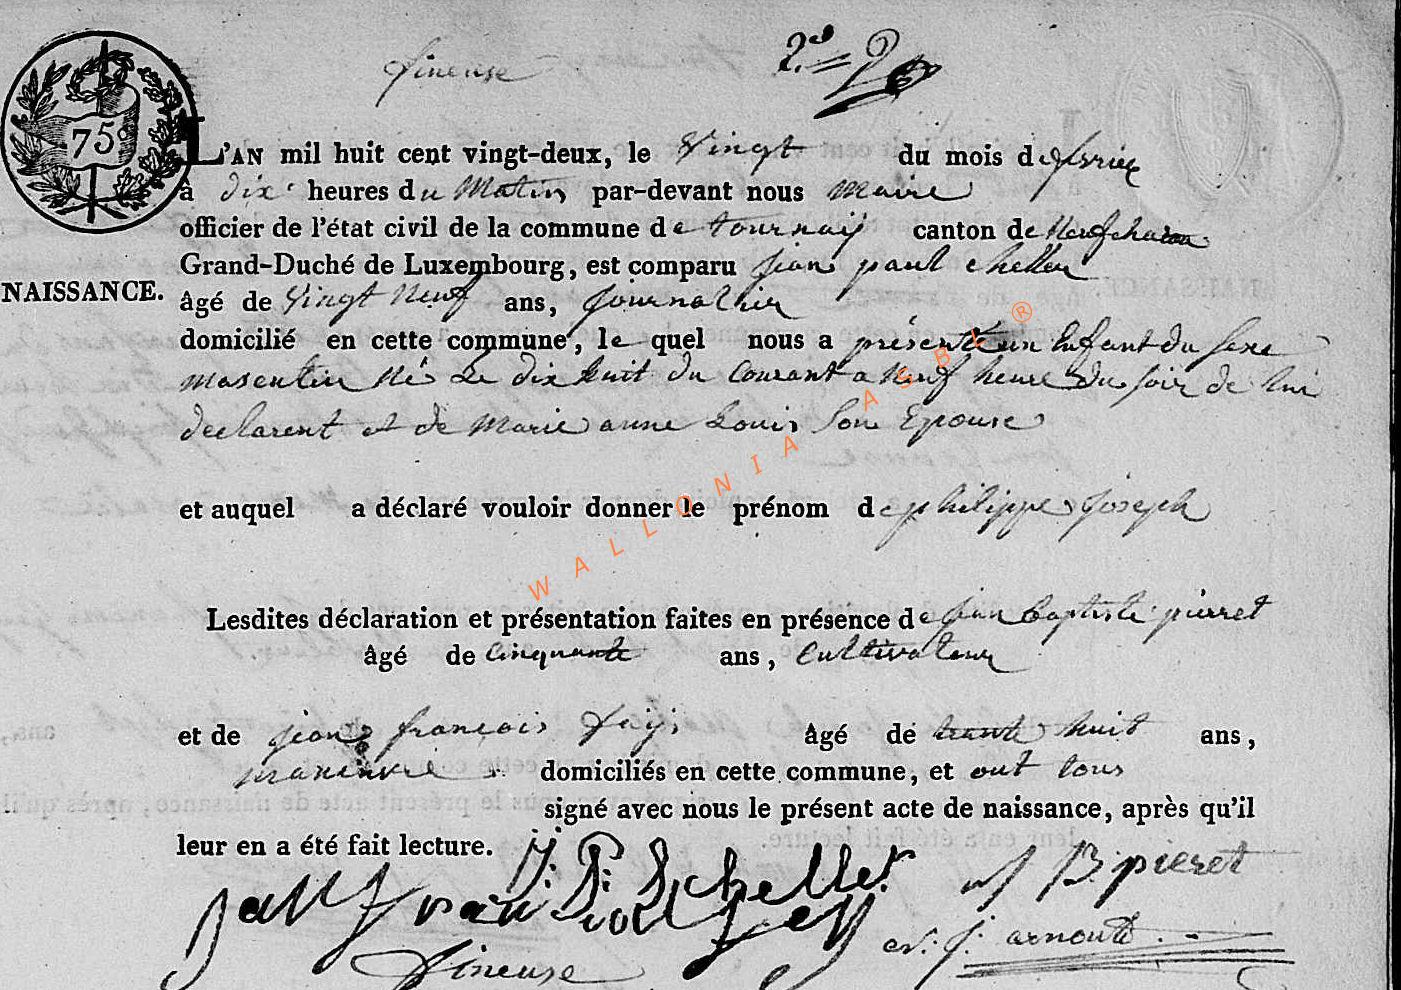 fineuse 2.d
75
L'AN mil huit cent vingt-deux, le Vingt du mois de fevrier
à dix heures du Matin par-devant nous maire
officier de l'état civil de la commune de tournaÿ canton de Neufchateau
NAISSANCE.
Grand-Duché de Luxembourg, est comparu jean paul cheller
âgé de Vingt Neuf ans, journallier
domicilié en cette commune, le quel nous a présenté un Enfant du sexe
masculin né Le dix huit du Courant a Neuf heure du soir de lui
declarent et de Marie anne Louis Son Epouse
et auquel a déclaré vouloir donner le prénom de philippe joseph
Lesdites déclaration et présentation faites en présence de jean baptiste pierret
âgé de cinquante ans, Cultivateur
et de jean françois ans,
âgé de trente huit
domiciliés en cette commune, et ont tous
signé avec nous le présent acte de naissance, après qu'il
leur en a été fait lecture.
J: P: Scheller
J B pieret
jean fran
arnould
fineuse
WALLONIA ASBL ®